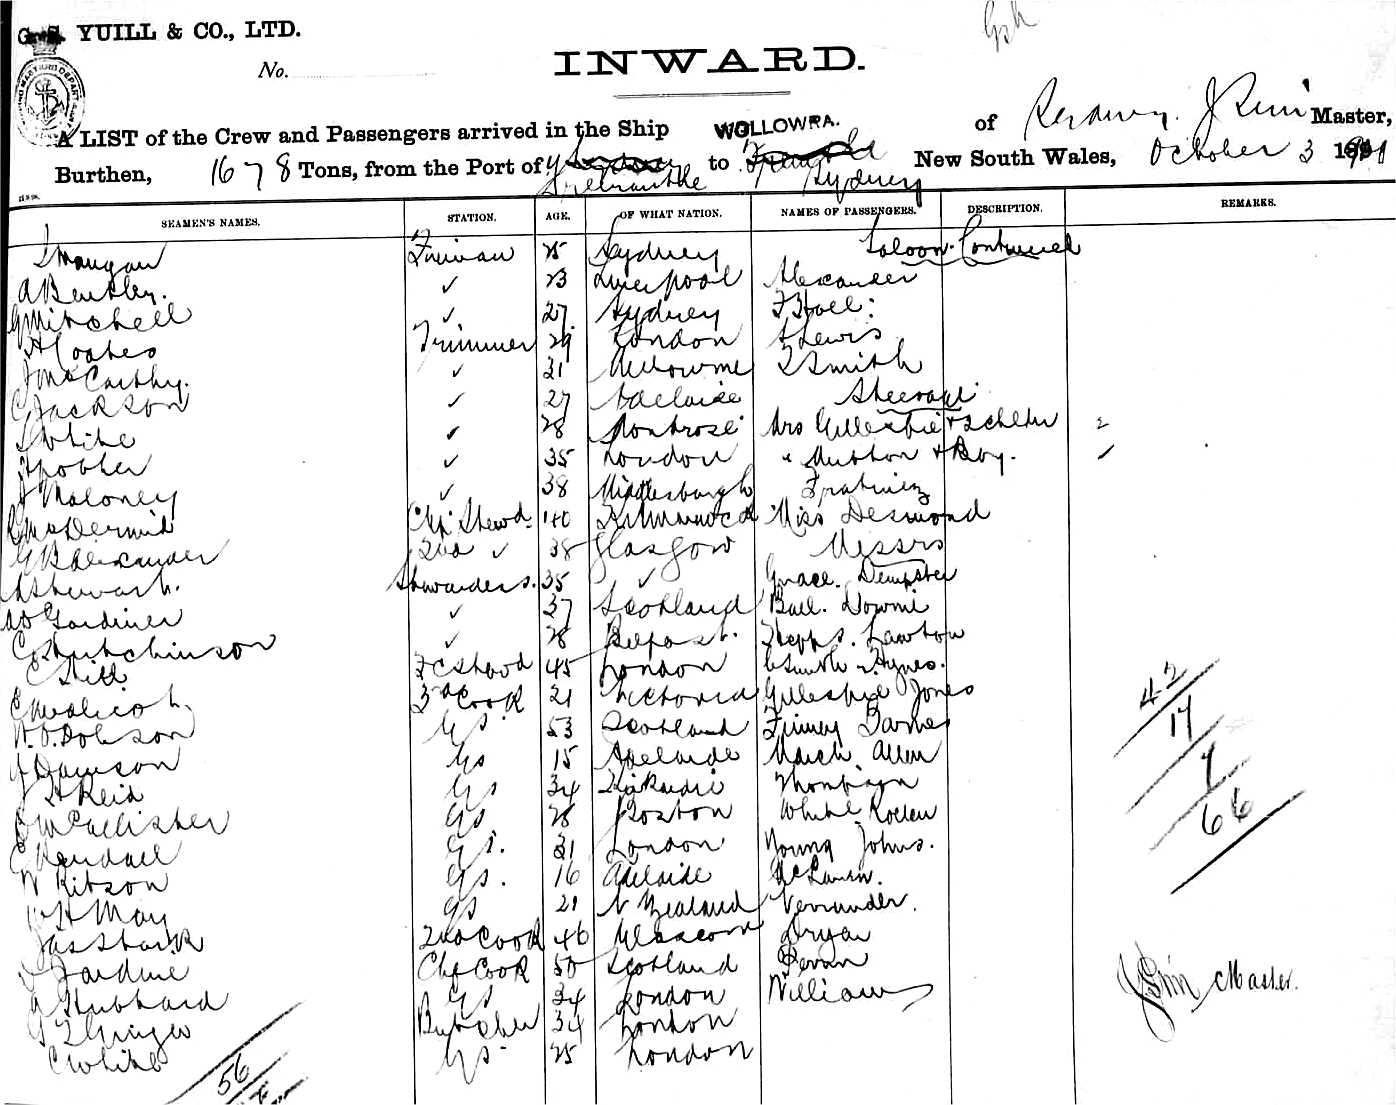 G. S. YUILL & CO., LTD.
No.
INWARD.
A LIST of the Crew and Passengers arrived in the Ship WOLLOWRA. of Sydney. Master,
Burthen, 1678 Tons, from the Port of Fremantle to Sydney New South Wales, October 3
SEAMEN'S NAMES. STATION. AGE. OF WHAT NATION. NAMES OF PASSENGERS. DESCRIPTION. REMARKS.
Mangan Fireman 25 Sydney Saloon Continued
A Bentley. ✓ 23 Liverpool Alexander
G Mitchell ✓ 27 Sydney F Hall
H Coates Trimmer 29 London Lewis
J McCarthy. ✓ 31 Melbourne Smith
C Jackson ✓ 27 Adelaide Steerage
White ✓ 28 Montrose Mrs Gillespie + 2 chldn 2
✓ 35 London " Mutton + Boy. ✓
J Maloney ✓ 38 Middlesburgh
McDermid Chf Stewd. 40 Kilmarnock Miss Desmond
G B Alexander 2nd ✓ 38 Glasgow Messrs
A Stewart. Stewardess. 35 ✓ Grace. Dempster
Gardiner ✓ 37 Scotland Ball. Downie
C Hutchinson ✓ 28 Belfast. Lawton
C Still F C Stood 45 London Smith Hynes.
3rd Cook 21 Victoria Gillespie Jones
W. D. Dobson GS. 53 Scotland Finney Barnes
J Dawson GS 15 Adelaide March Allen
H Reid GS 34 Thompson
McCallister GS 28 Boston White
C Kendall GS. 31 London Young Johns.
W Ritson GS. 16 Adelaide McLaren.
W H May GS 21 N Zealand
Jas Stark 2nd Cook 46 Glasgow Dryan
J Jardine Chf Cook 50 Scotland Bevan
A Hubbard GS 34 London Williams
Butcher 34 London
C White GS 25 London
42
17
7
66
Master.
56